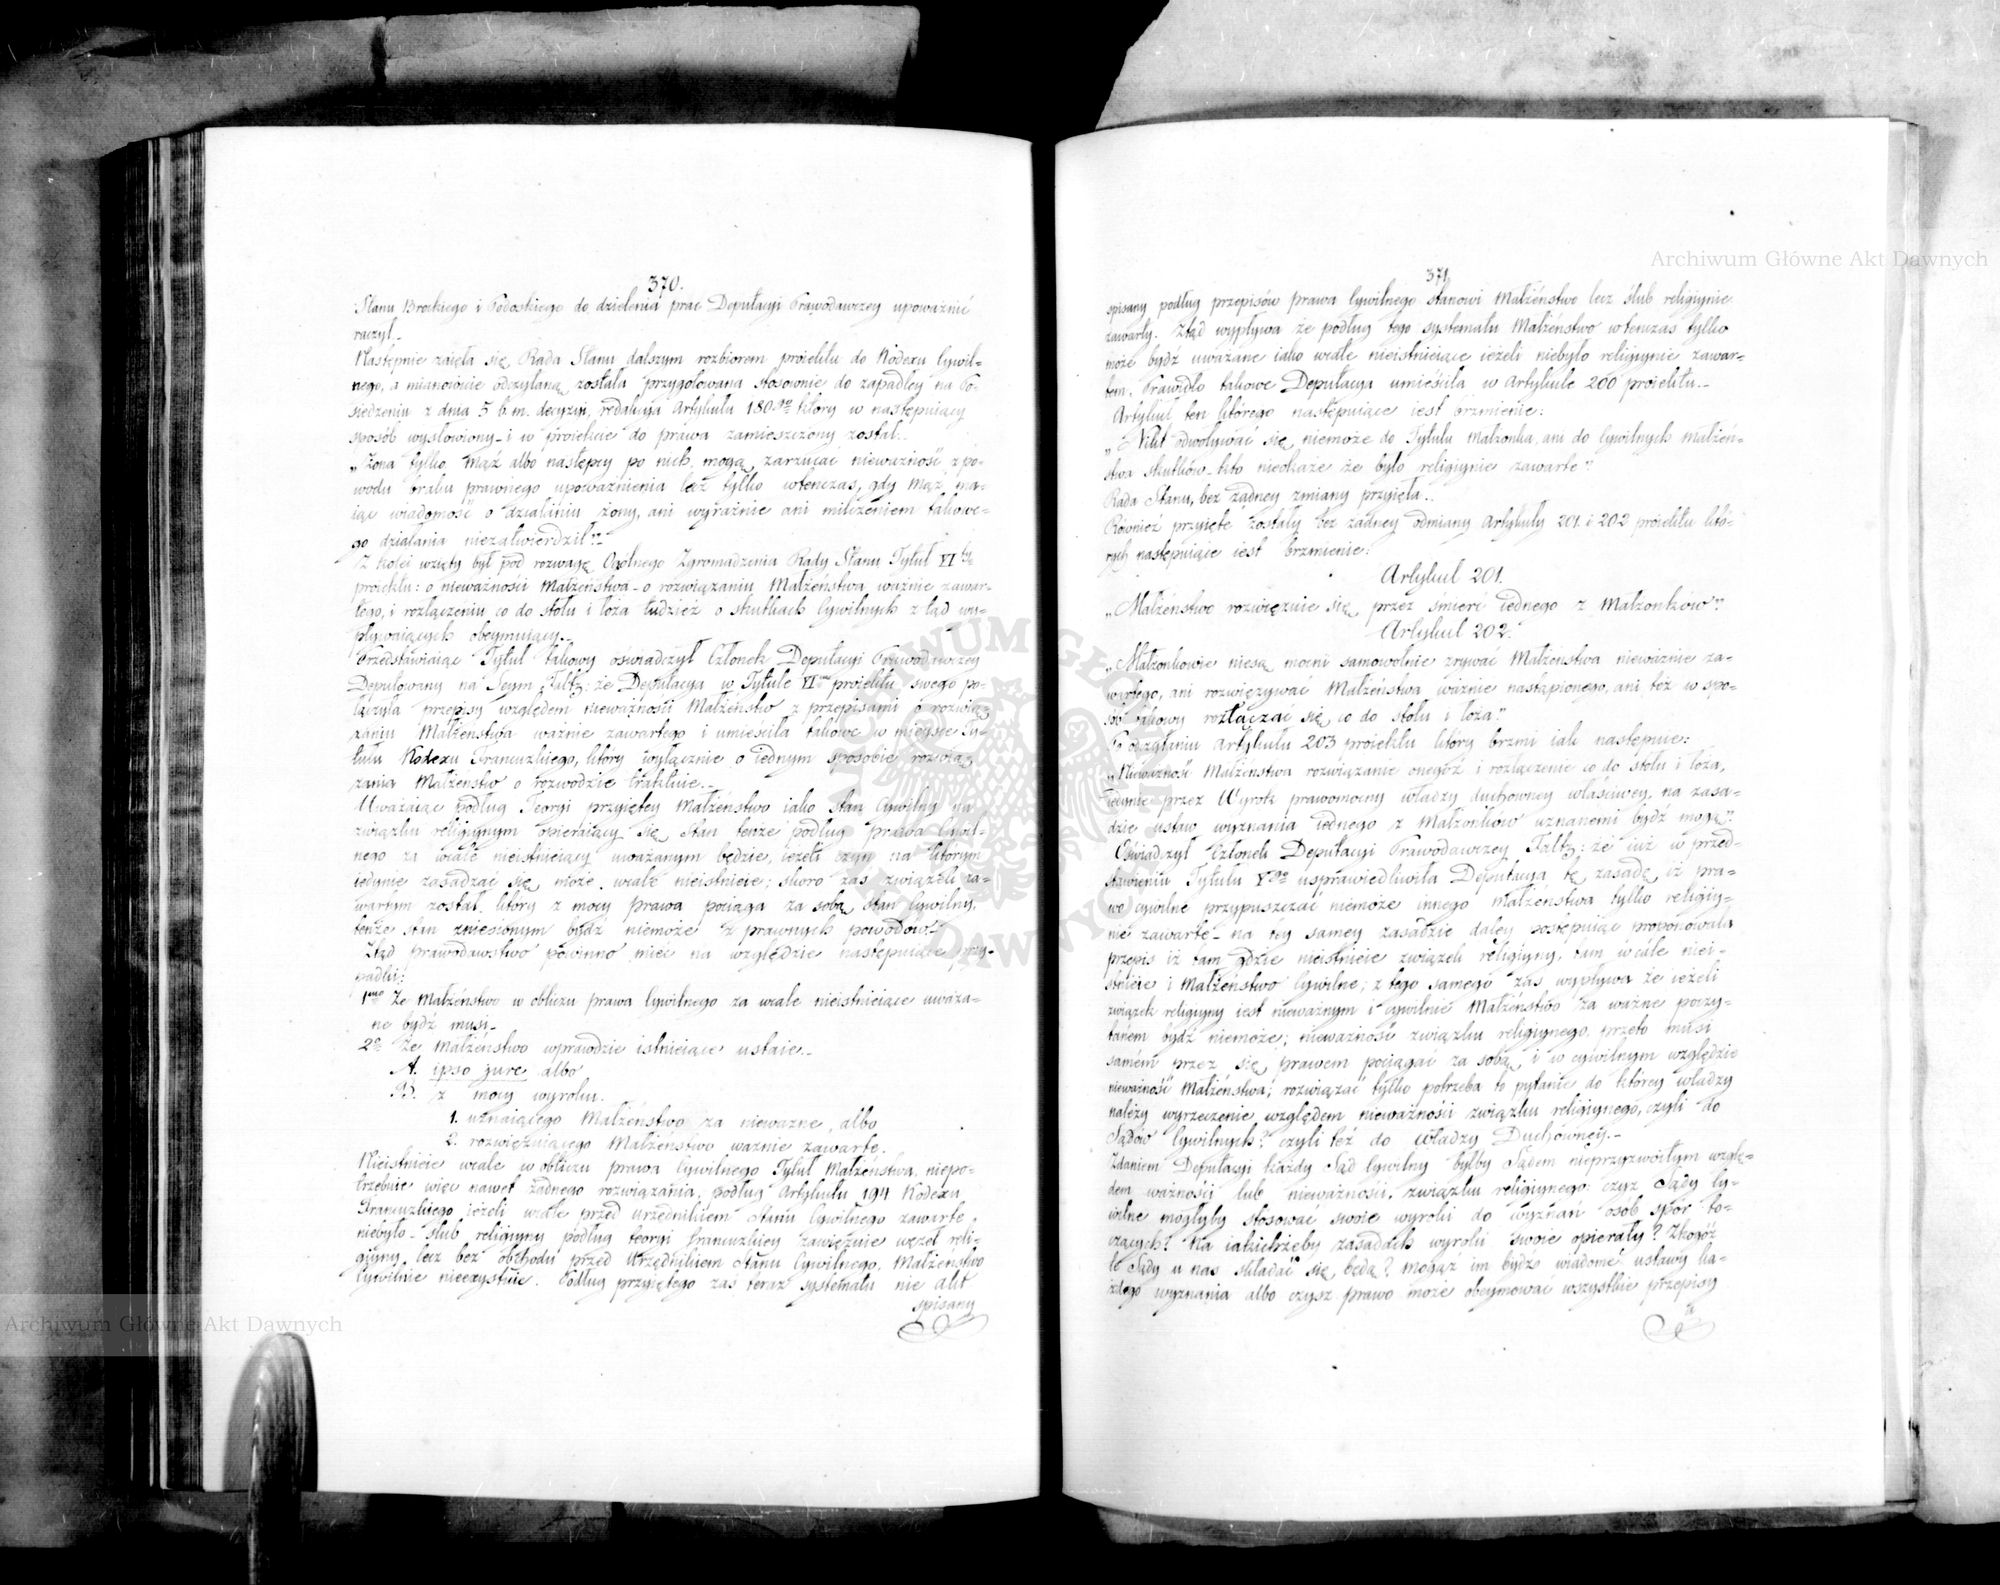 370.
Stanu Brockiego i Podoskiego do dzielenia prac Deputacyi Prawodawczey upoważnić
raczył._
Następnie zaięła się Rada Stanu dalszym rozbiorem proiektu do Kodexu Cywil-
nego, a mianowicie odczytaną została przygotowana stosownie do zapadłey na Po-
siedzeniu z dnia 5 b. m. decyzyi, redakcya Artykułu 180go który w następuiący
sposób wysłowiony i w proiekcie do prawa zamieszczony został._
„Żona tylko, Mąż albo następcy po nich, mogą zarzucać nieważność z po-
wodu braku prawnego upoważnienia lecz tylko wtenczas, gdy Mąż ma-
iąc wiadomość o działaniu żony, ani wyraźnie ani milczeniem takowe-
go działania niezatwierdził"._
Z kolei wzięty był pod rozwagę Ogólnego Zgromadzenia Rady Stanu Tytuł VIty
proiektu: o nieważności Małżeństwa_ o rozwiązaniu Małżeństwa ważnie zawar-
tego, i rozłączeniu co do stołu i łoża tudzież o skutkach Cywilnych ztąd wy-
pływaiących obeymuiący._
Przedstawiaiąc Tytuł takowy oświadczył Członek Deputacyi Prawodawczey
Deputowany na Seym Faltz: że Deputacya w Tytule VIym proiektu swego po-
łączyła przepisy względem nieważności Małżeństw z przepisami o rozwią-
zaniu Małżeństwa ważnie zawartego i umieściła takowe w mieysce Ty-
tułu Kodexu Francuzkiego, który wyłącznie o iednym sposobie rozwią-
zania Małżeństw o rozwodzie traktuie._
Uważaiąc podług Teoryi przyiętey Małżeństwo iako stan Cywilny na
związku religiynym opieraiący się Stan tenże podług prawa Cywil-
nego za wcale nieistnieiący uważanym będzie, ieżeli czyn na którym
iedynie zasadzać się może, wcale nieistnieie; skoro zaś związek za-
wartym został, który z mocy prawa pociąga za sobą stan Cywilny,
tenże stan zniesionym bydź niemoże z prawnych powodów._
Ztąd prawodawstwo powinno mieć na względzie następuiące przy-
padki:
1mo Że Małżeństwo w obliczu prawa Cywilnego za wcale nieistnieiące uważa-
ne bydź musi._
2o Że Małżeństwo wprawdzie istnieiące ustaie._
A. ipso jure albo
B. z mocy wyroku.
1. uznaiącego Małżeństwo za nieważne, albo
2. rozwięzuiącego Małżeństwo ważnie zawarte.
Nieistnieie wcale w obliczu prawa Cywilnego Tytuł Małżeństwa, niepo-
trzebuie więc nawet żadnego rozwiązania, podług Artykułu 194 Kodexu
Francuzkiego ieżeli wcale przed Urzędnikiem Stanu Cywilnego zawarte
niebyło. Ślub religiyny podług teoryi francuzkiey zawięzuie węzeł reli-
giyny, lecz bez obchodu przed Urzędnikiem Stanu Cywilnego, Małżeństwo
Cywilnie nieexystuie. Podług przyiętego zaś teraz systematu nie akt
spisany
371.
spisany podług przepisów prawa Cywilnego stanowi Małżeństwo lecz ślub religiynie
zawarty. Ztąd wypływa że podług tego systematu Małżeństwo wtenczas tylko
może bydź uważane iako wcale nieistnieiące ieżeli niebyło religiynie zawar-
tem. Prawidło takowe Deputacya umieściła w Artykule 200 proiektu._
Artykuł ten którego następuiące iest brzmienie:
„Nikt odwoływać się niemoże do Tytułu Małżonka, ani do Cywilnych Małżeń-
stwa skutków_ kto nieokaże że było religiynie zawarte"
Rada Stanu, bez żadney zmiany przyięła._
Również przyięte zostały bez żadney odmiany Artykuły 201. i 202 proiektu któ-
rych następuiące iest brzmienie:
Artykuł 201.
„Małżeństwo rozwięzuie się przez śmierć iednego z Małżonków".
Artykuł 202.
„Małżonkowie niesą mocni samowolnie zrywać Małżeństwa nieważnie za-
wartego, ani rozwięzywać Małżeństwa ważnie nastąpionego, ani też w spo-
sób takowy rozłączać się co do stołu i łoża."
Po odczytaniu Artykułu 203 proiektu który brzmi iak następuie:
„Nieważność Małżeństwa rozwiązanie onegoż i rozłączenie co do stołu i łoża,
iedynie przez Wyrok prawomocny władzy duchowney właściwey, na zasa-
dzie ustaw wyznania iednego z Małżonków uznanemi bydź mogą".
Oświadczył Członek Deputacyi Prawodawczey Faltz: że iuż w przed-
stawieniu Tytułu Vgo usprawiedliwiła Deputacya tę zasadę iż pra-
wo cywilne przypuszczać niemoże innego Małżeństwa tylko religiy-
nie zawarte_ na tey samey zasadzie daley postępuiąc proponowała
przepis iż tam gdzie nieistnieie związek religiyny, tam wcale niei-
stnieie i Małżeństwo Cywilne; z tego samego zaś wypływa że ieżeli
związek religiyny iest nieważnym i cywilnie Małżeństwo za ważne poczy-
tanem bydź niemoże; nieważność związku religiynego, przeto musi
samem przez się prawem pociągać za sobą i w cywilnym względzie
nieważność Małżeństwa; rozwiązać tylko potrzeba to pytanie do którey władzy
należy wyrzeczenie względem nieważności związku religiynego, czyli do
Sądów Cywilnych? czyli też do Władzy Duchowney._
Zdaniem Deputacyi każdy Sąd Cywilny byłby Sądem nieprzyzwoitym wzglę-
dem ważności lub nieważności, związku religiynego: czyż Sądy Cy-
wilne mogłyby stosować swoie wyroki do wyznań osób spór to-
czących? Na iakichżeby zasadach wyroki swoie opierały? Zkogóż
te Sądy u nas składać się będą? mogąż im bydź wiadome ustawy ka-
żdego wyznania albo czysz prawo może obeymować wszystkie przepisy